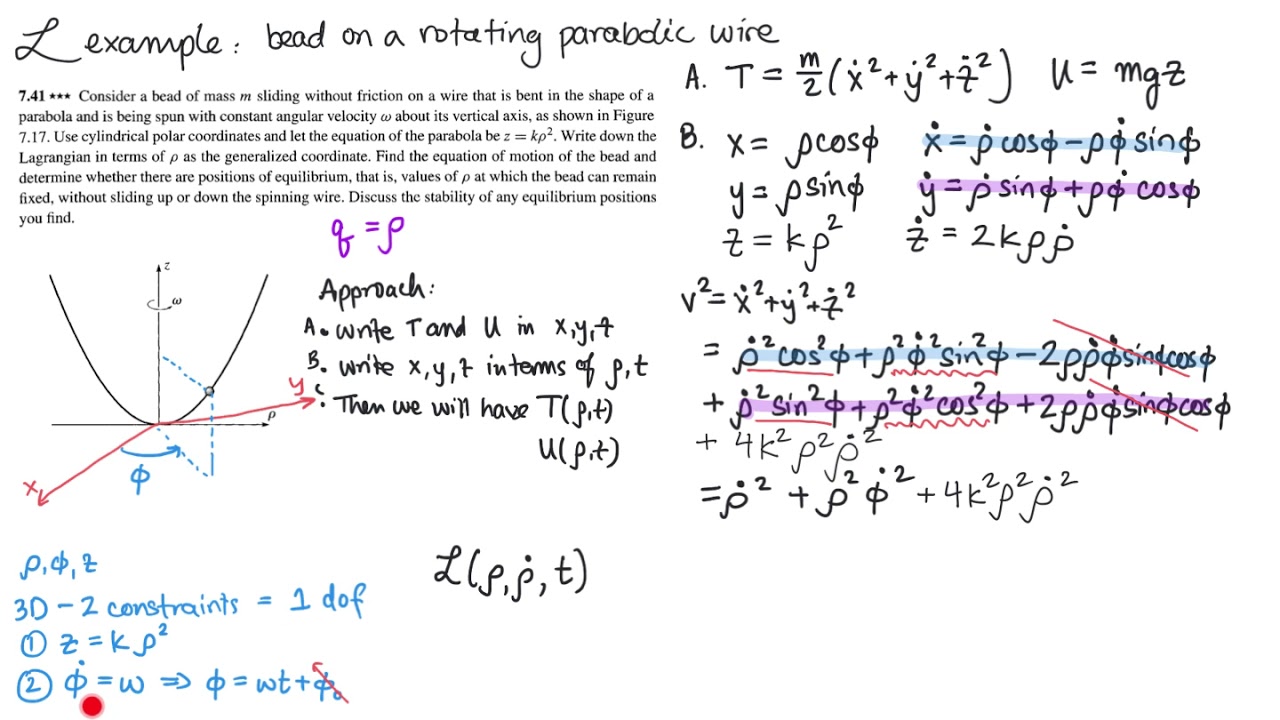 ℒ example: bead on a rotating parabolic wire
7.41 ⋆⋆⋆ Consider a bead of mass m sliding without friction on a wire that is bent in the shape of a
parabola and is being spun with constant angular velocity ω about its vertical axis, as shown in Figure
7.17. Use cylindrical polar coordinates and let the equation of the parabola be z = kρ². Write down the
Lagrangian in terms of ρ as the generalized coordinate. Find the equation of motion of the bead and
determine whether there are positions of equilibrium, that is, values of ρ at which the bead can remain
fixed, without sliding up or down the spinning wire. Discuss the stability of any equilibrium positions
you find.
q = ρ
z
ω
ρ
y
x
ϕ
Approach:
A. write T and U in x,y,z
B. write x,y,z in terms of ρ,t
C. Then we will have T(ρ,t)
U(ρ,t)
ρ,ϕ,z
3D - 2 constraints = 1 dof
① z = kρ²
② ϕ̇ = ω ⇒ ϕ = ωt + ϕ₀
ℒ(ρ,ρ̇,t)
A. T = m/2 (ẋ² + ẏ² + ż²) U = mgz
B. x = ρcosϕ ẋ = ρ̇cosϕ − ρϕ̇ sinϕ
y = ρsinϕ ẏ = ρ̇sinϕ + ρϕ̇ cosϕ
z = kρ² ż = 2kρρ̇
v² = ẋ² + ẏ² + ż²
= ρ̇²cos²ϕ + ρ²ϕ̇²sin²ϕ − 2ρρ̇ϕ̇sinϕcosϕ
+ ρ̇²sin²ϕ + ρ²ϕ̇²cos²ϕ + 2ρρ̇ϕ̇sinϕcosϕ
+ 4k²ρ²ρ̇²
= ρ̇² + ρ²ϕ̇² + 4k²ρ²ρ̇²